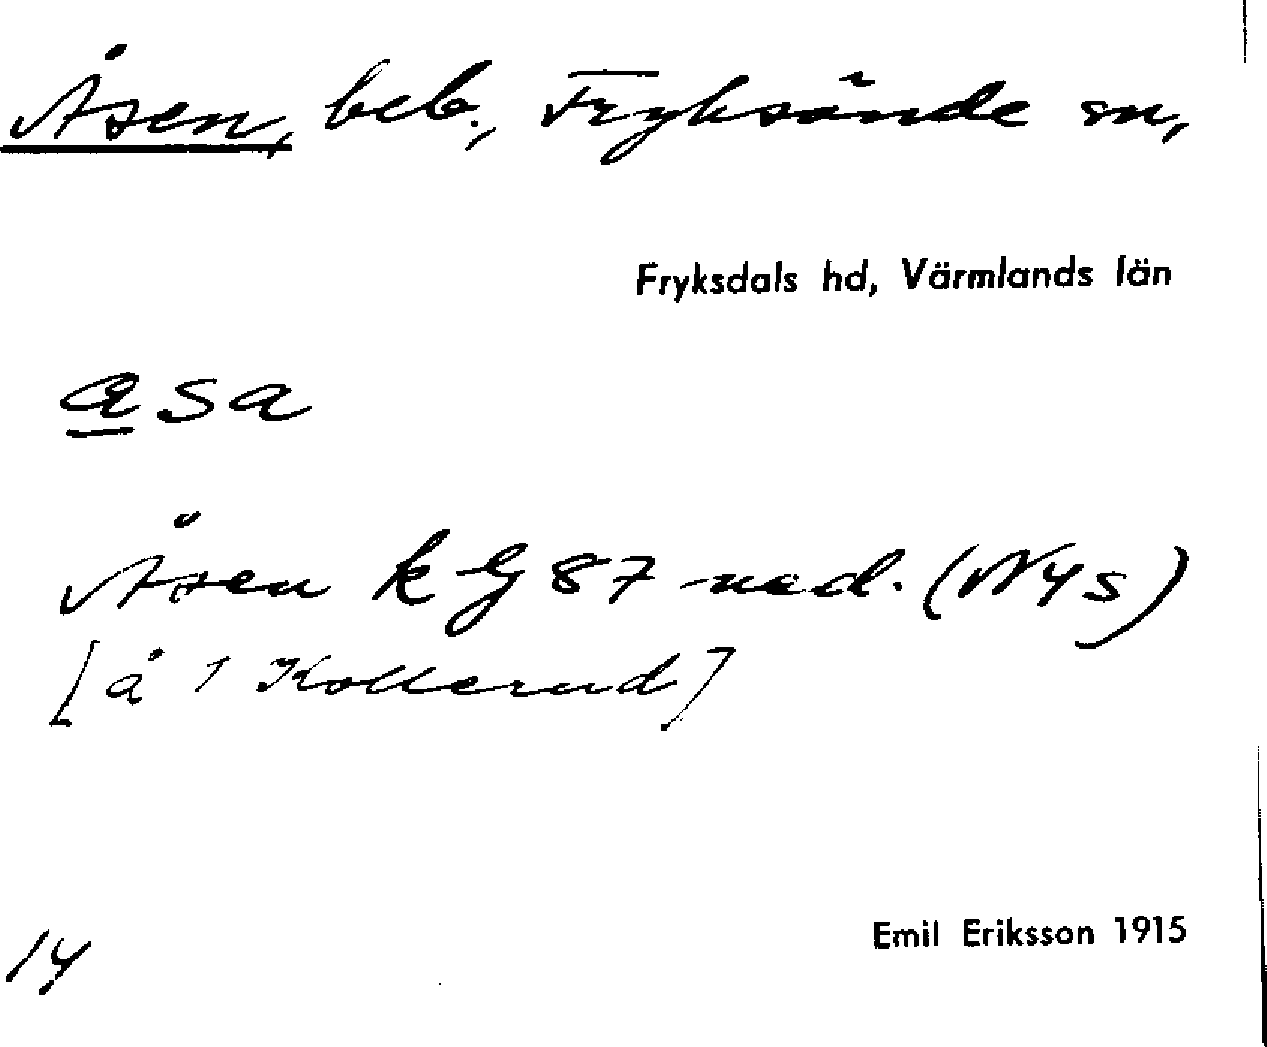 Åsen, beb., Fryksände sn,
Fryksdals hd, Värmlands län
asa
Åsen k G 87 ned. (NYS)
[å 1 Kollerud]
Emil Eriksson 1915
14